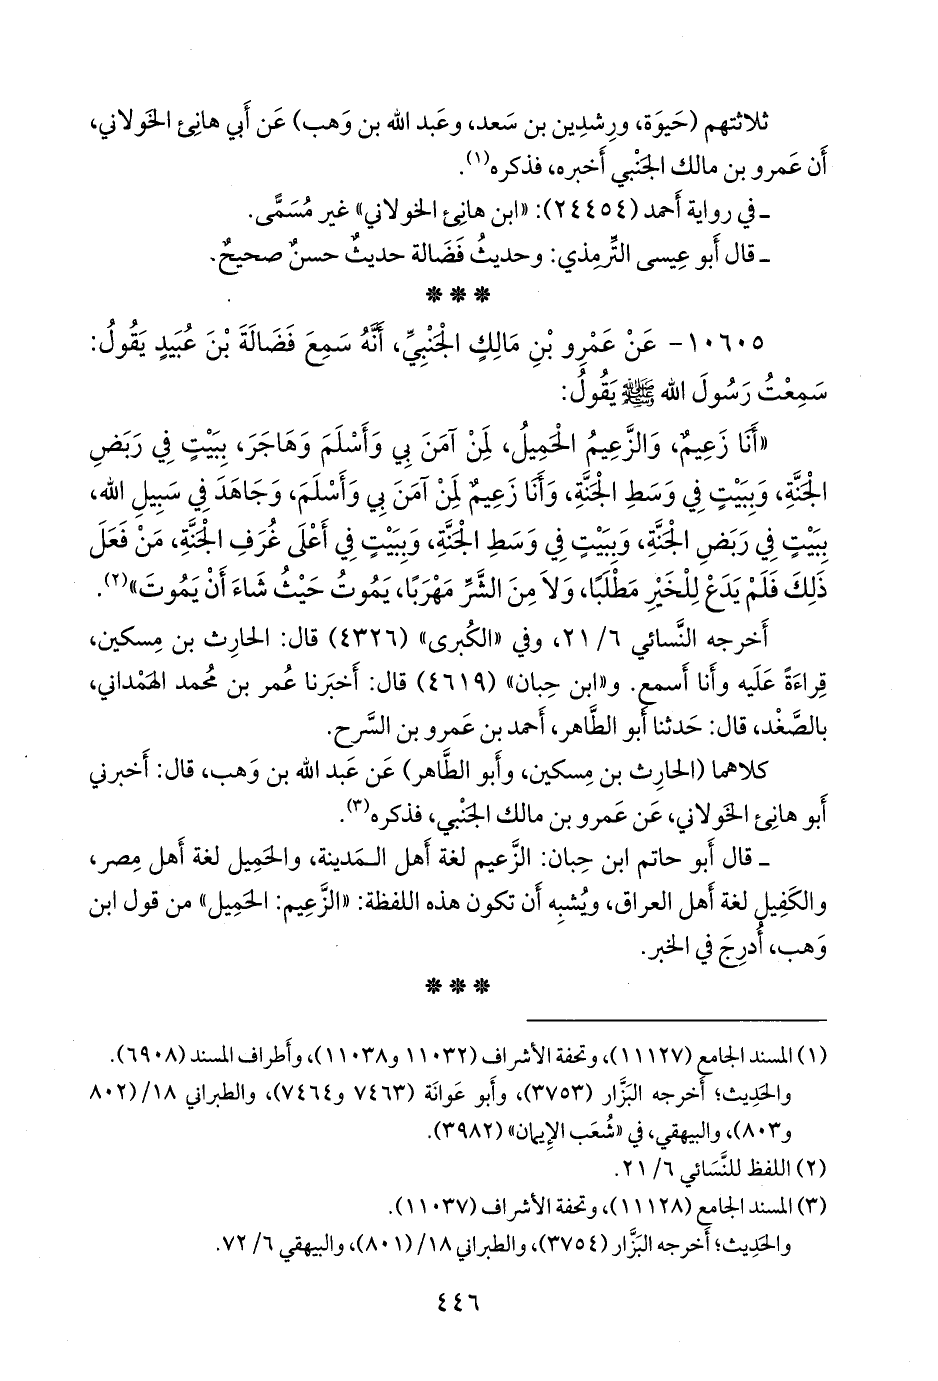 ثلاثتهم (حَيوَة، ورِشدِين بن سَعد، وعَبد الله بن وَهب) عَن أَبي هانِئ الخَولاني،
أَن عَمرو بن مالك الجَنْبي أَخبره، فذكره(١).
ـ في رواية أَحمد (٢٤٤٥٤): «ابن هانِئ الخولاني» غير مُسَمًّى.
ـ قال أَبو عِيسى التِّرمِذي: وحديثُ فَضَالة حديثٌ حسنٌ صحيحٌ.
***
١٠٦٠٥- عَنْ عَمْرِو بْنِ مَالِكٍ الْجَنْبِيِّ، أَنَّهُ سَمِعَ فَضَالَةَ بْنَ عُبَيدٍ يَقُولُ:
سَمِعْتُ رَسُولَ الله ﷺ يَقُولُ:
«أَنَا زَعِيمٌ، وَالزَّعِيمُ الْحَمِيلُ، لِمَنْ آمَنَ بِي وَأَسْلَمَ وَهَاجَرَ، بِبَيْتٍ فِي رَبَضِ
الْجَنَّةِ، وَبِبَيْتٍ فِي وَسَطِ الْجَنَّةِ، وَأَنَا زَعِيمٌ لِمَنْ آمَنَ بِي وَأَسْلَمَ، وَجَاهَدَ فِي سَبِيلِ الله،
بِبَيْتٍ فِي رَبَضِ الْجَنَّةِ، وَبِبَيْتٍ فِي وَسَطِ الْجَنَّةِ، وَبِبَيْتٍ فِي أَعْلَى غُرَفِ الْجَنَّةِ، مَنْ فَعَلَ
ذَلِكَ فَلَمْ يَدَعْ لِلْخَيْرِ مَطْلَبًا، وَلاَ مِنَ الشَّرِّ مَهْرَبًا، يَمُوتُ حَيْثُ شَاءَ أَنْ يَمُوتَ»(٢).
أَخرجه النَّسائي ٦/ ٢١، وفي «الكُبرى» (٤٣٢٦) قال: الحارِث بن مِسكين،
قِراءَةً عَلَيه وأَنا أَسمع. و«ابن حِبان» (٤٦١٩) قال: أَخبَرنا عُمر بن مُحمد الهَمْداني،
بالصُّغْد، قال: حَدثنا أَبو الطَّاهر، أَحمد بن عَمرو بن السَّرح.
كلاهما (الحارِث بن مِسكين، وأَبو الطَّاهر) عَن عَبد الله بن وَهب، قال: أَخبرني
أَبو هانِئ الخَولاني، عَن عَمرو بن مالك الجَنْبي، فذكره(٣).
ـ قال أَبو حاتم ابن حِبان: الزَّعيم لغة أَهل الـمَدينة، والحَمِيل لغة أَهل مِصر،
والكَفِيل لغة أَهل العراق، ويُشبِه أَن تكون هذه اللفظة: «الزَّعِيم: الحَمِيل» من قول ابن
وَهب، أُدرِجَ في الخبر.
***
(١) المسند الجامع (١١١٢٧)، وتحفة الأشراف (١١٠٣٢ و١١٠٣٨)، وأطراف المسند (٦٩٠٨).
والحَدِيث؛ أَخرجه البَزَّار (٣٧٥٣)، وأَبو عَوانَة (٧٤٦٣ و٧٤٦٤)، والطبراني ١٨/ (٨٠٢
و٨٠٣)، والبيهقي، في «شُعَب الإِيمان» (٣٩٨٢).
(٢) اللفظ للنَّسَائي ٦/ ٢١.
(٣) المسند الجامع (١١١٢٨)، وتحفة الأشراف (١١٠٣٧).
والحَدِيث؛ أَخرجه البَزَّار (٣٧٥٤)، والطبراني ١٨/ (٨٠١)، والبيهقي ٦/ ٧٢.
٤٤٦